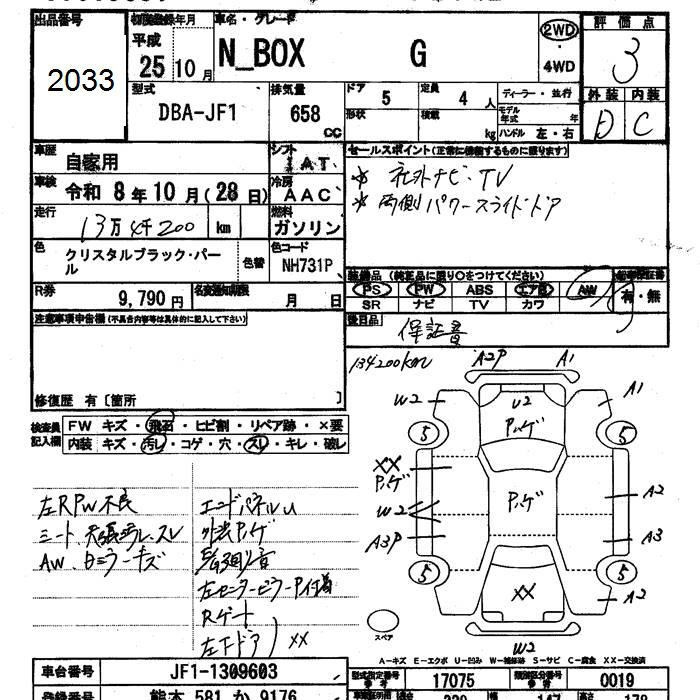 出品番号
2033
初度登録年月
平成
25年10月
車名・グレード
N_BOX G
2WD
・
4WD
評価点
3
外装 内装
D C
型式
DBA-JF1
排気量
658
CC
ドア
5
形状
定員
4人
積載
kg
ディーラー・並行
モデル年式 年
ハンドル 左・右
車歴
自家用
シフト
AT
車検
令和 8年10月(28日)
冷房
AAC
走行
13万4千200 km
燃料
ガソリン
色
クリスタルブラック・パール
色替
色コード
NH731P
R券
9,790円
名変通知期限
月 日
セールスポイント(正常に機能するものに限ります)
* 社外ナビ・TV
* 両側パワースライドドア
装備品(純正品に限り○をつけてください)
PS PW ABS エアB AW
SR ナビ TV カワ
有・無
後日品
保証書
注意事項申告欄(不具合内容等は具体的に記入して下さい)
修復歴 有〔箇所 〕
検査員
記入欄
FW キズ・飛石・ヒビ割・リペア跡・×要
内装 キズ・汚レ・コゲ・穴・スレ・キレ・破レ
左RPW不良
シート、天張汚レ、スレ
AW、Dミラーキズ
エンドパネルU
外装Pハゲ
左センターピラーP付着
Rゲート
左Fドア) XX
134200km
A2P A1
W2 U2 A1
Pハゲ
5 5
XX
Pハゲ
Pハゲ
W2
A2
A3P A3
5 5
XX A2
W2
スペア
A-キズ E-エクボ U-凹み W-補修跡 S-サビ C-腐食 XX-交換済
車台番号
JF1-1309603
登録番号
熊本 581 か 9176
型式指定番号
17075
類別区分番号
0019